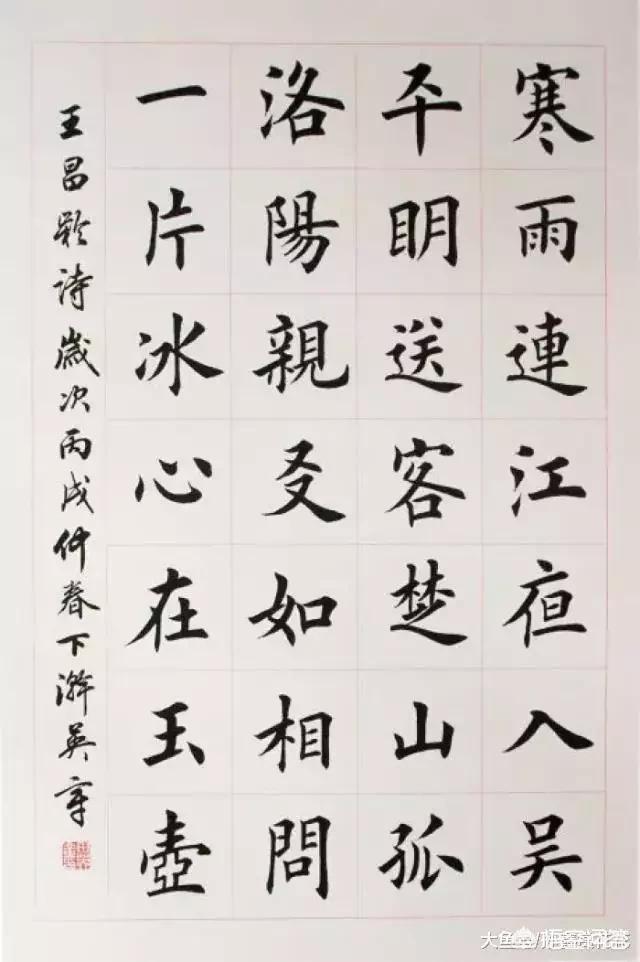 寒雨連江夜入吴
平明送客楚山孤
洛陽親友如相問
一片冰心在玉壺
王昌齡诗歲次丙戌仲春下澣英
悟空问答